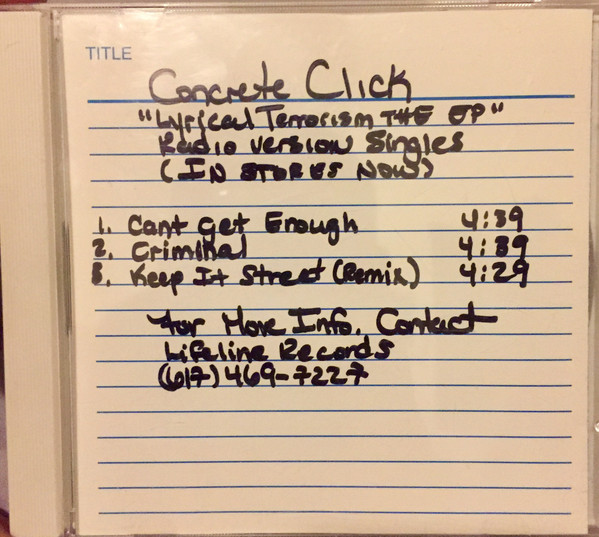 TITLE
Concrete Click
"Lyrical Terrorism THE EP"
Radio Version Singles
(IN STORES NOW)
1. Cant Get Enough 4:39
2. Criminal 4:39
3. Keep It Street (Remix) 4:29
For More Info. Contact
Lifeline Records
(617) 469-7227